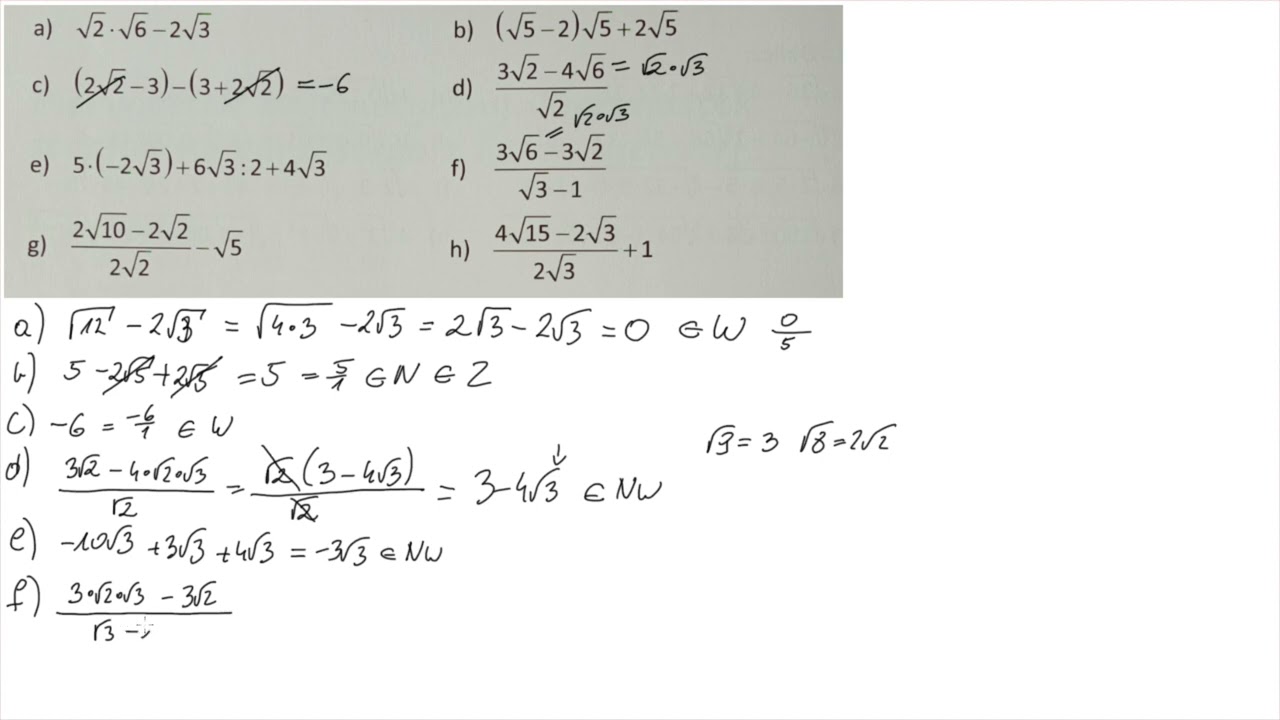 a) √2·√6−2√3
b) (√5−2)√5+2√5
c) (2√2−3)−(3+2√2) =−6
d) (3√2−4√6)/√2 = √2·√3
√2·√3
=
e) 5·(−2√3)+6√3:2+4√3
f) (3√6−3√2)/(√3−1)
g) (2√10−2√2)/(2√2)−√5
h) (4√15−2√3)/(2√3)+1
a) √12 − 2√3 = √4·3 − 2√3 = 2√3 − 2√3 = 0 ∈ W 0/5
b) 5 − 2√5 + 2√5 = 5 = 5/1 ∈ N ∈ Z
c) −6 = −6/1 ∈ W
√9 = 3 √8 = 2√2
d) (3√2 − 4·√2·√3)/√2 = √2(3 − 4√3)/√2 = 3−4√3 ∈ NW
e) −10√3 + 3√3 + 4√3 = −3√3 ∈ NW
f) (3·√2·√3 − 3√2)/(√3 −